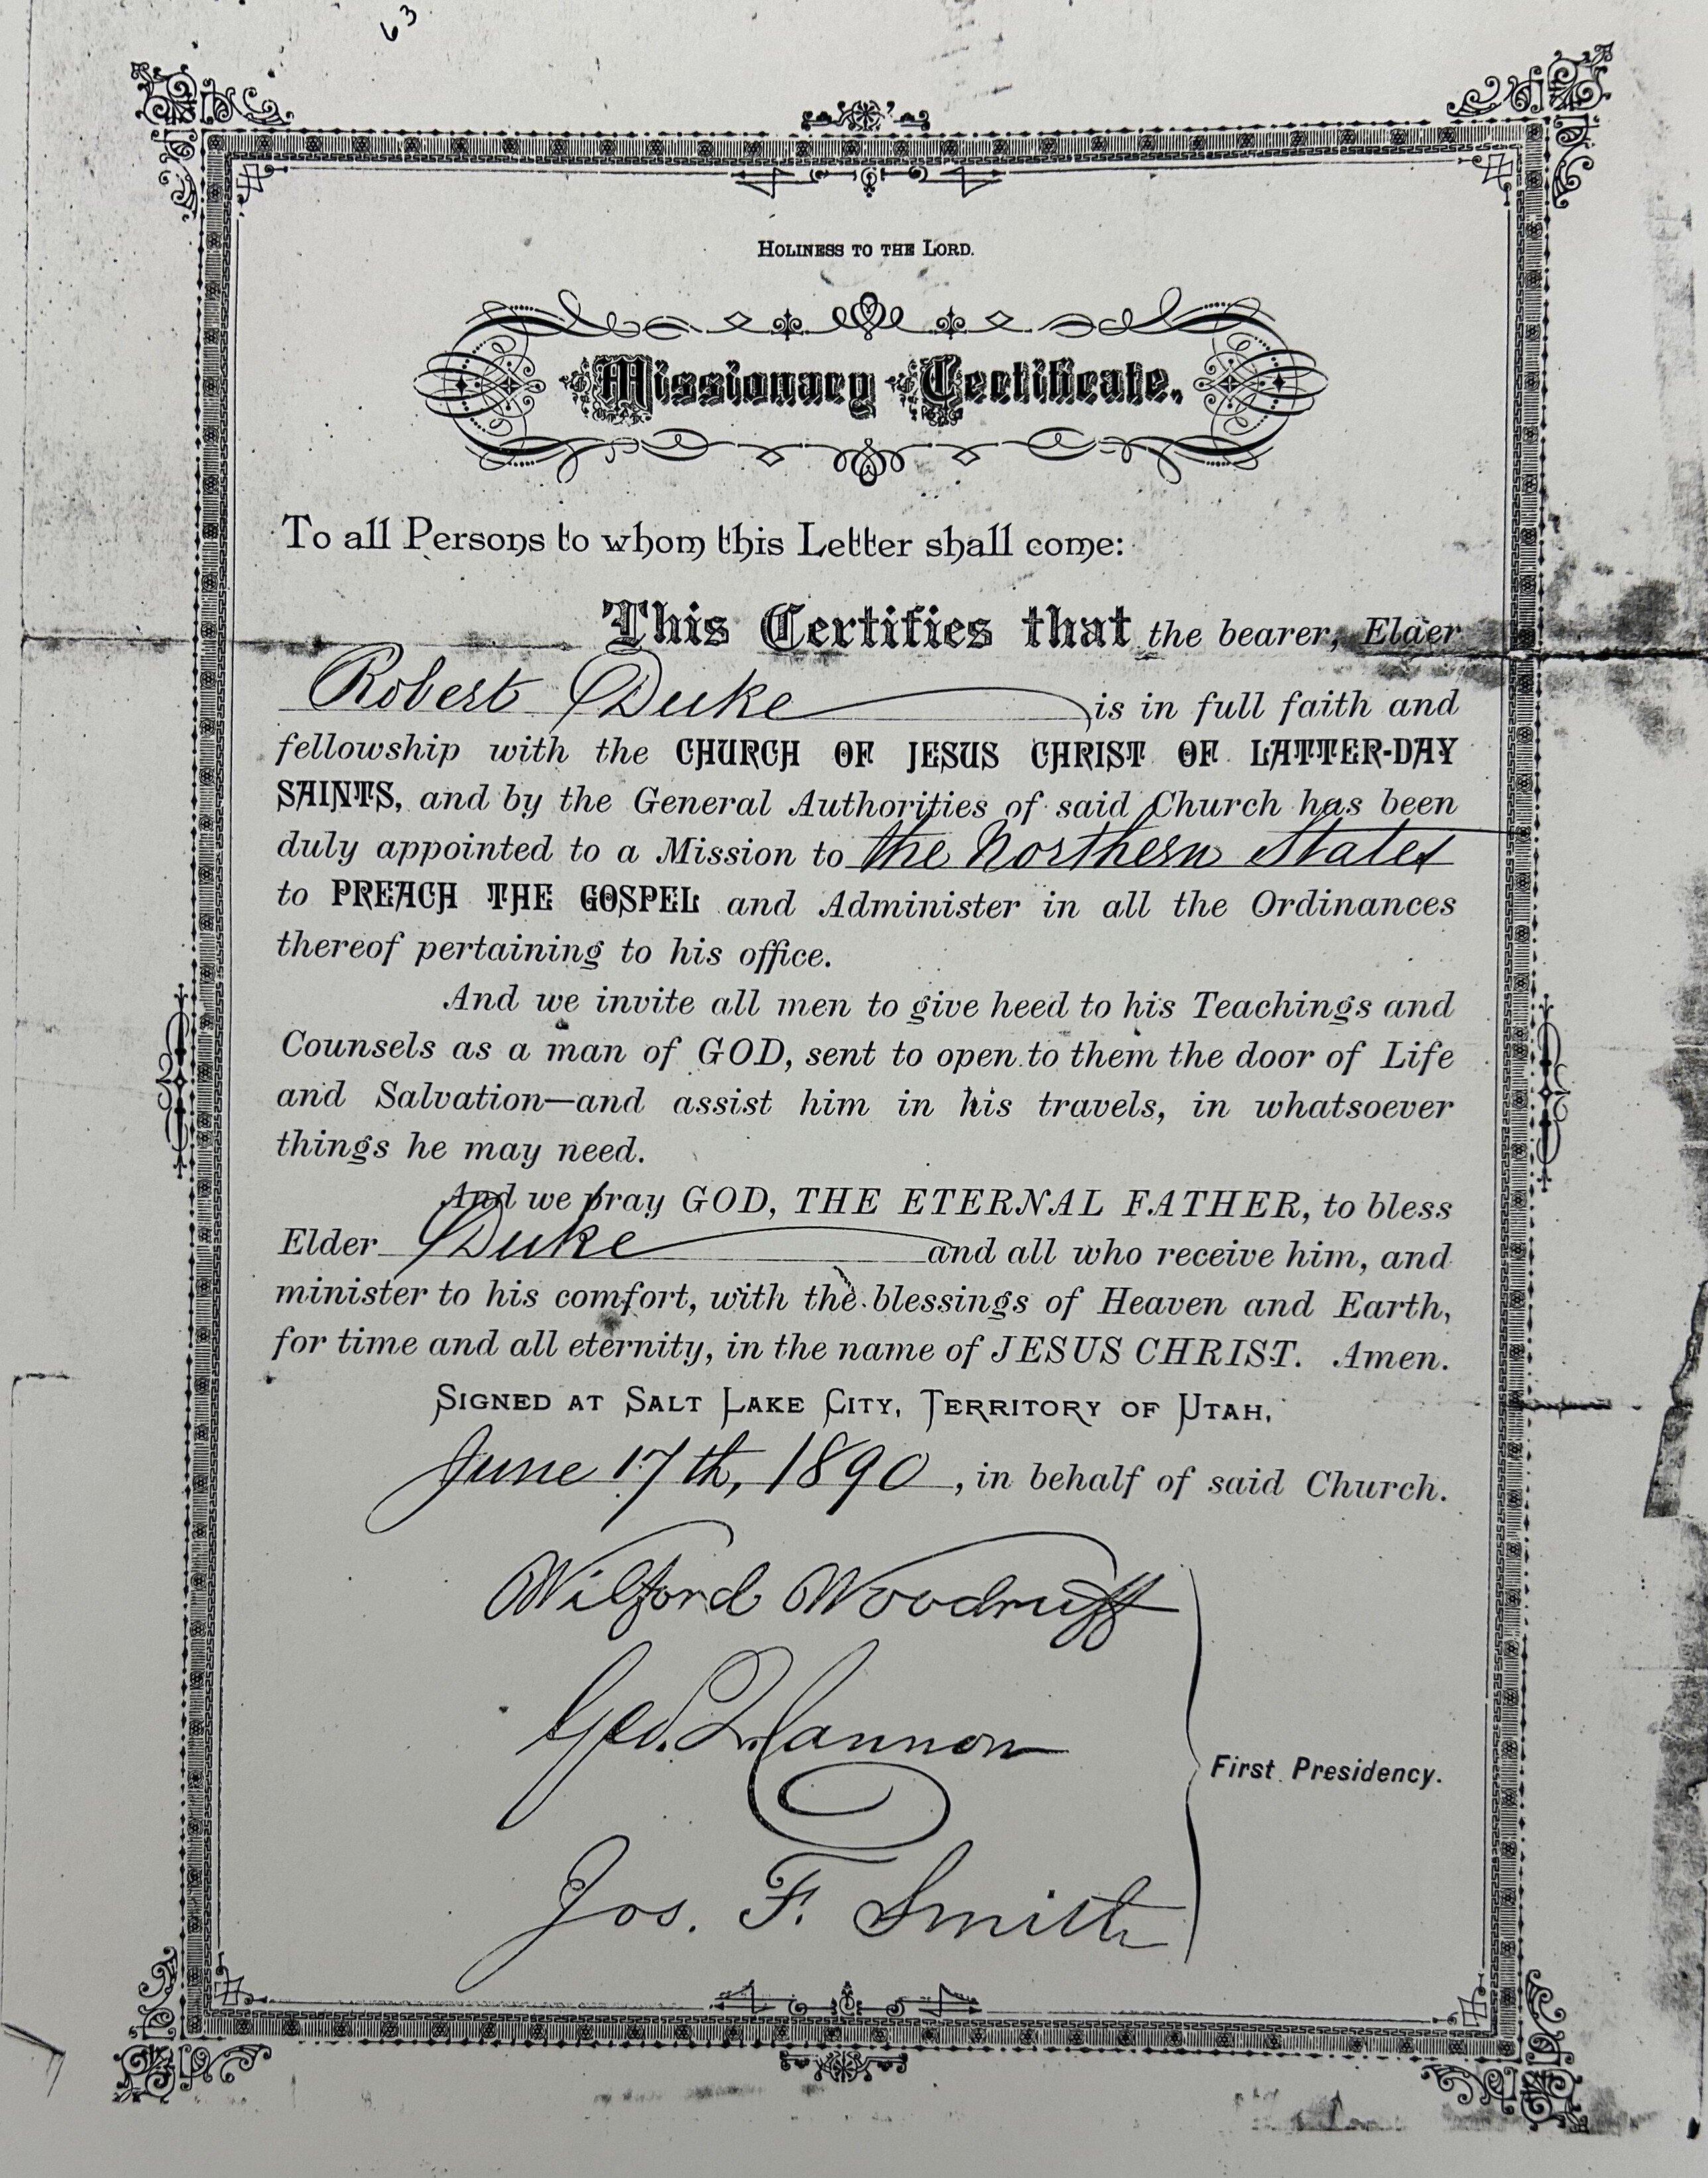 63
HOLINESS TO THE LORD.
Missionary Certificate.
To all Persons to whom this Letter shall come:
This Certifies that the bearer, Elder
Robert Duke is in full faith and
fellowship with the CHURCH OF JESUS CHRIST OF LATTER-DAY
SAINTS, and by the General Authorities of said Church has been
duly appointed to a Mission to the Northern States
to PREACH THE GOSPEL and Administer in all the Ordinances
thereof pertaining to his office.
And we invite all men to give heed to his Teachings and
Counsels as a man of GOD, sent to open to them the door of Life
and Salvation—and assist him in his travels, in whatsoever
things he may need.
And we pray GOD, THE ETERNAL FATHER, to bless
Elder Duke and all who receive him, and
minister to his comfort, with the blessings of Heaven and Earth,
for time and all eternity, in the name of JESUS CHRIST. Amen.
SIGNED AT SALT LAKE CITY, TERRITORY OF UTAH,
June 17th, 1890, in behalf of said Church.
Wilford Woodruff
Geo. Q. Cannon
First Presidency.
Jos. F. Smith